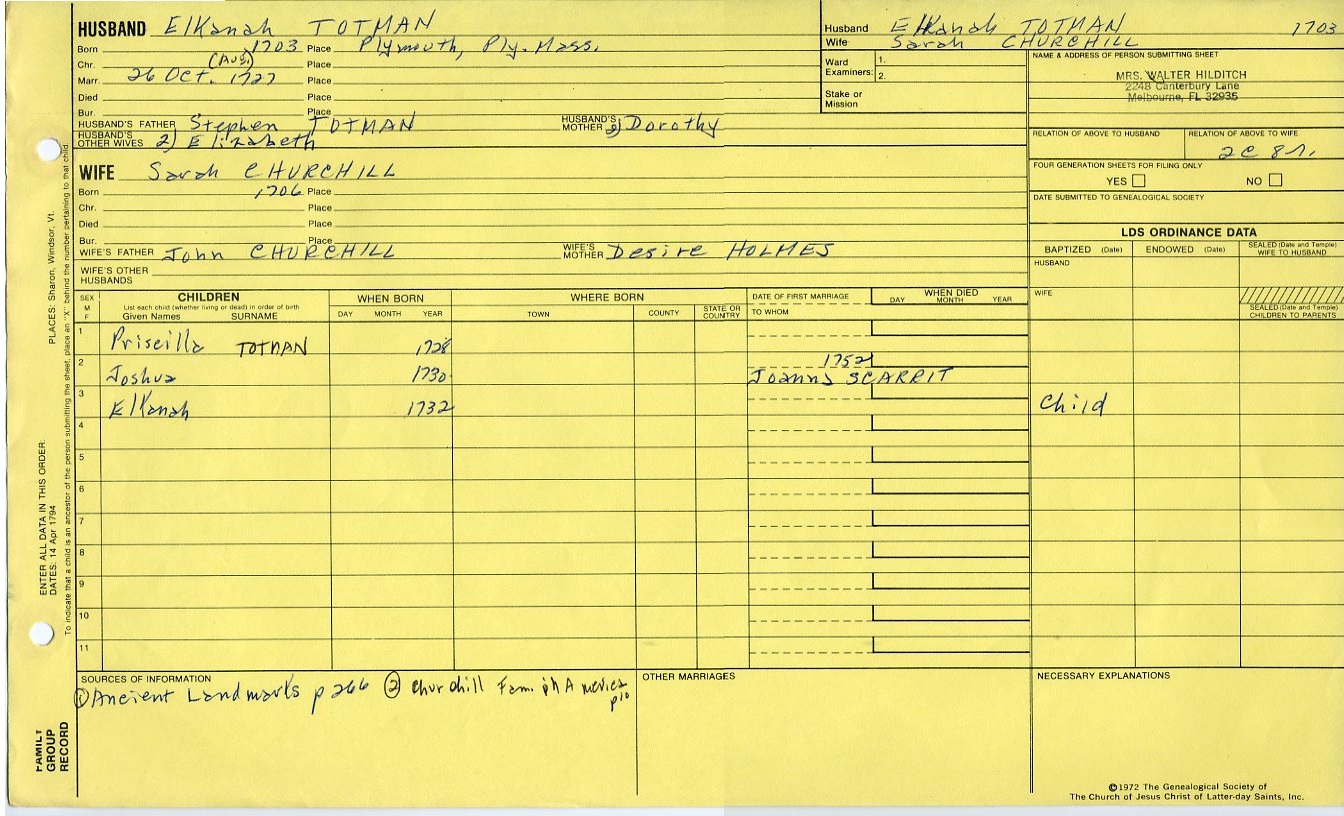 HUSBAND Elkanah TOTMAN
Born 1703 Place Plymouth, Ply. Mass.
Chr. (Aug.) Place
Marr. 26 Oct. 1727 Place
Died Place
Bur. Place
HUSBAND'S FATHER Stephen TOTMAN HUSBAND'S MOTHER 2) Dorothy
HUSBAND'S OTHER WIVES 2) Elizabeth
WIFE Sarah CHURCHILL
Born 1706 Place
Chr. Place
Died Place
Bur. Place
WIFE'S FATHER John CHURCHILL WIFE'S MOTHER Desire HOLMES
WIFE'S OTHER HUSBANDS
Husband Elkanah TOTMAN 1703
Wife Sarah CHURCHILL
Ward 1.
Examiners: 2.
Stake or
Mission
NAME & ADDRESS OF PERSON SUBMITTING SHEET
MRS. WALTER HILDITCH
2248 Canterbury Lane
Melbourne, FL 32935
RELATION OF ABOVE TO HUSBAND RELATION OF ABOVE TO WIFE
2C 8r.
FOUR GENERATION SHEETS FOR FILING ONLY
YES NO
DATE SUBMITTED TO GENEALOGICAL SOCIETY
LDS ORDINANCE DATA
BAPTIZED (Date) ENDOWED (Date) SEALED (Date and Temple) WIFE TO HUSBAND
HUSBAND
WIFE
SEALED (Date and Temple) CHILDREN TO PARENTS
SEX M F CHILDREN WHEN BORN WHERE BORN DATE OF FIRST MARRIAGE WHEN DIED
List each child (whether living or dead) in order of birth
Given Names SURNAME DAY MONTH YEAR TOWN COUNTY STATE OR COUNTRY TO WHOM DAY MONTH YEAR
1 Priscilla TOTMAN 1728
2 Joshua 1730 1752 Joanna SCARRIT
3 Elkanah 1732 Child
4
5
6
7
8
9
10
11
SOURCES OF INFORMATION
① Ancient Landmarks p 266 ② Churchill Fam. in America
p10
OTHER MARRIAGES
NECESSARY EXPLANATIONS
©1972 The Genealogical Society of
The Church of Jesus Christ of Latter-day Saints, Inc.
FAMILY GROUP RECORD
ENTER ALL DATA IN THIS ORDER:
DATES: 14 Apr 1794
PLACES: Sharon, Windsor, Vt.
To indicate that a child is an ancestor of the person submitting the sheet, place an "X" behind the number pertaining to that child.